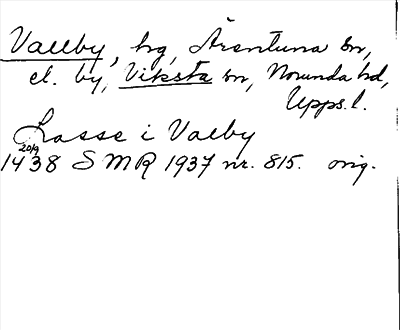 Vallby, hg, Ärentuna sn,
el. by, Viksta sn, Norunda hd,
Upps. l.
Lasse i Valby
1438 20/9 SMR 1937 nr. 815. orig.